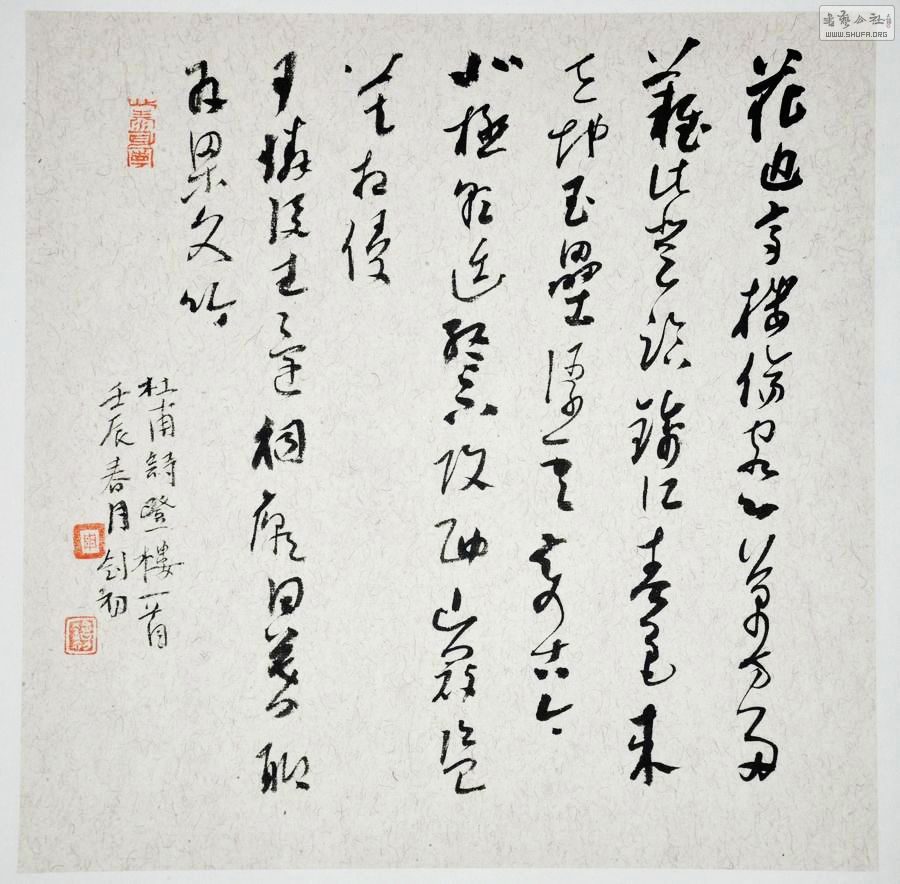 花近高樓傷客心萬方多
難此登臨錦江春色來
天地玉壘浮雲變古今
北極朝廷終不改西山寇盜
莫相侵
可憐後主還祠廟日暮聊
為梁父吟
杜甫詩登樓一首
壬辰春月剑初
書藝公社
WWW.SHUFA.ORG